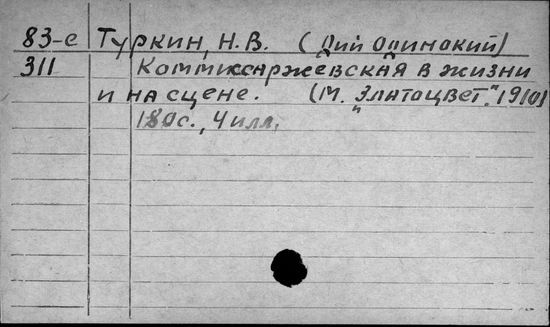 83-е Туркин, Н.В. (Дий Одинокий)
311 Коммиссаржевская в жизни
и на сцене. (М. „Златоцвет", 1910)
180с., 4 илл.